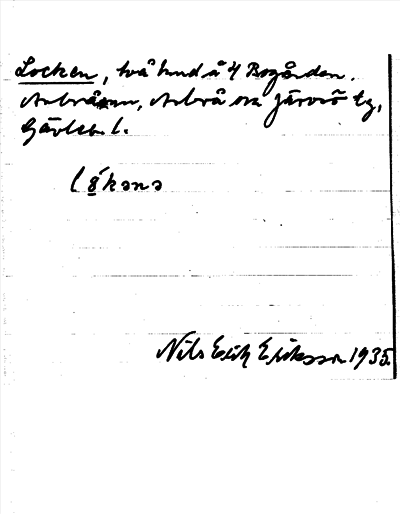 Locken, två hmd å 4 Bogården.
Arbrå sn, Arbrå o. Järvsö tg,
Gävleb. l.
Nils Erik Eriksson 1935.